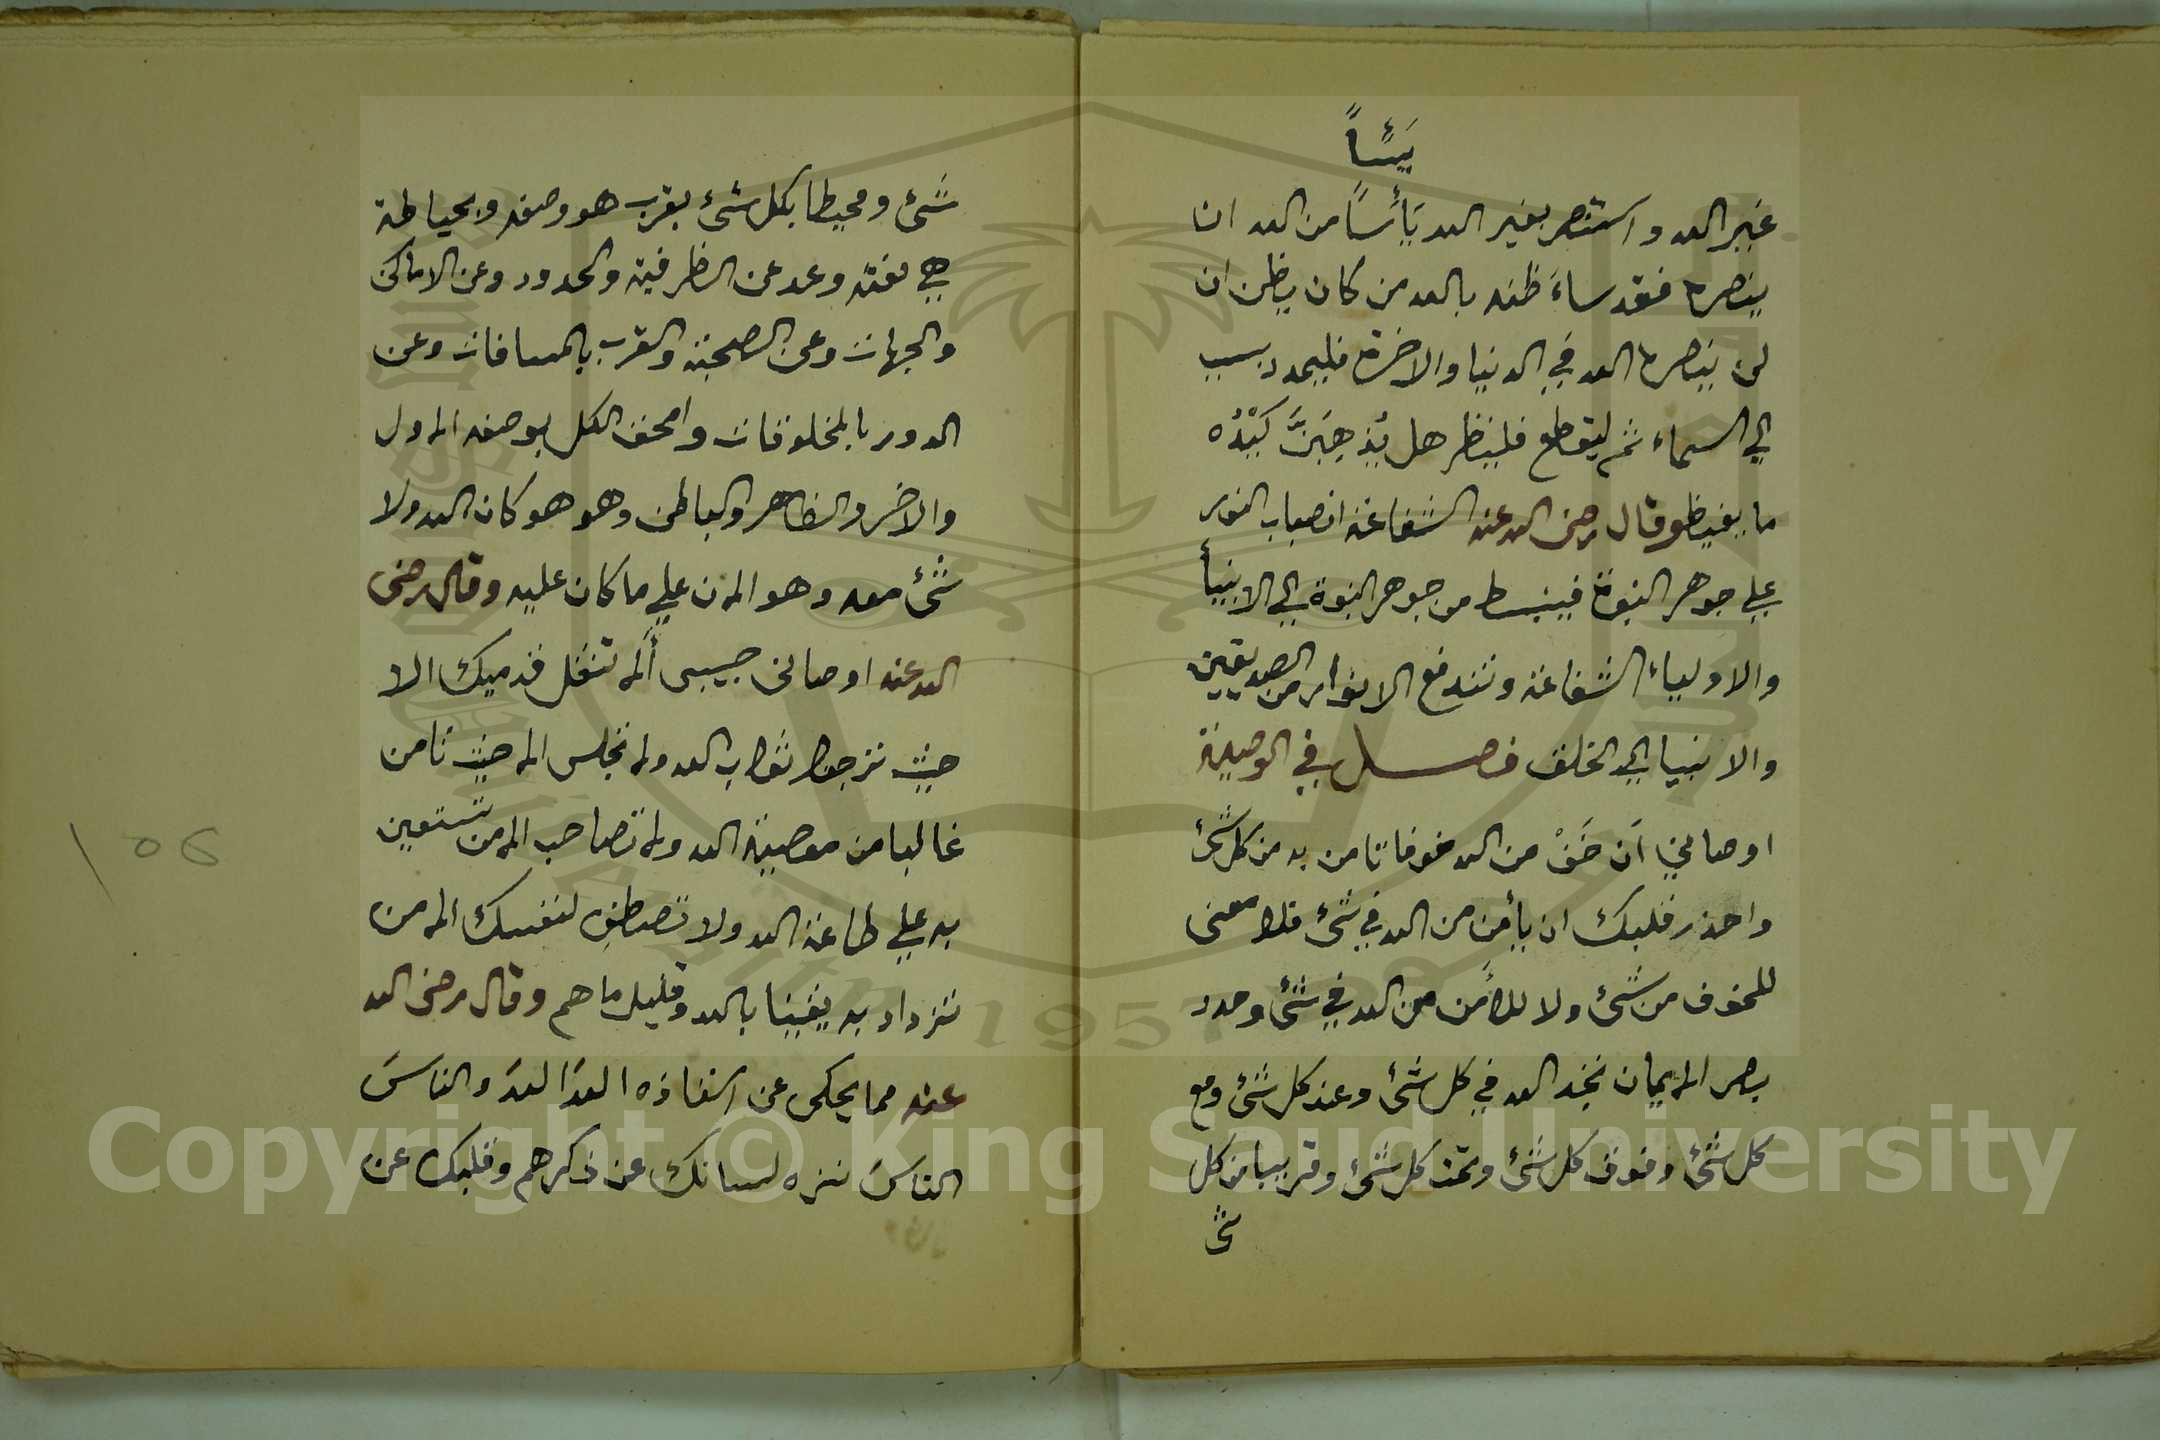 يَئَساً
غير الله واستنصر بغير الله يَأَسَاً من الله ان
ينصره فقد ساءَ ظنه بالله من كان يظن ان
لن ينصره الله في الدنيا والاخرة فليمدد بسبب
الي السماء ثم ليقطع فلينظر هل يُذهِبَنَّ كَيْدُه
ما يغيظ وقال رضى الله عنه الشفاعة انصباب النور
علي جوهر النبوة فينبسط من جوهر النبوة الي الانبيأ
والاولياء الشفاعة وتندفع الانوار من الصديقين
والانبيا الي الخلق فصل في الوصية
اوصاني ان خَفْ من الله خوفا تامن به من كل شئ
واحذر قلبك ان يأمن من الله في شئ فلا معنى
للخوف من شئ ولا للأمن من الله في شئ وحدد
بصر الايمان تجد الله في كل شئ وعند كل شئ ومع
كل شئ وفوق كل شئ وتحت كل شئ وقريبا من كل
شئ
شئ ومحيطا بكل شئ بقرب هو وصفه وبحياطة
هي نعته وعد عن الظرفية والحدود وعن الاماكن
والجهات وعن الصحبة والقرب بالمسافات وعن
الدور بالمخلوقات وامحق الكل بوصفه الاول
والاخر والظاهر والباطن وهو هو كان الله ولا
شئ معه وهو الان علي ما كان عليه وقال رضى
الله عنه اوصانى حبيبى ألا تنقل قدميك الا
حيث ترجوا ثواب الله ولا تجلس الا حيث تامن
غالبا من معصية الله ولا تصاحب الا من تستعين
به علي طاعة الله ولا تصطفي لنفسك الا من
تزداد به يقينا بالله وقليل ما هم وقال رضى الله
عنه مما يحكى عن استاذه اللهَ اللهَ والناسَ
الناسَ نزه لسانك عن ذكرهم وقلبك عن
١٥٤
Copyright © King Saud University
1957